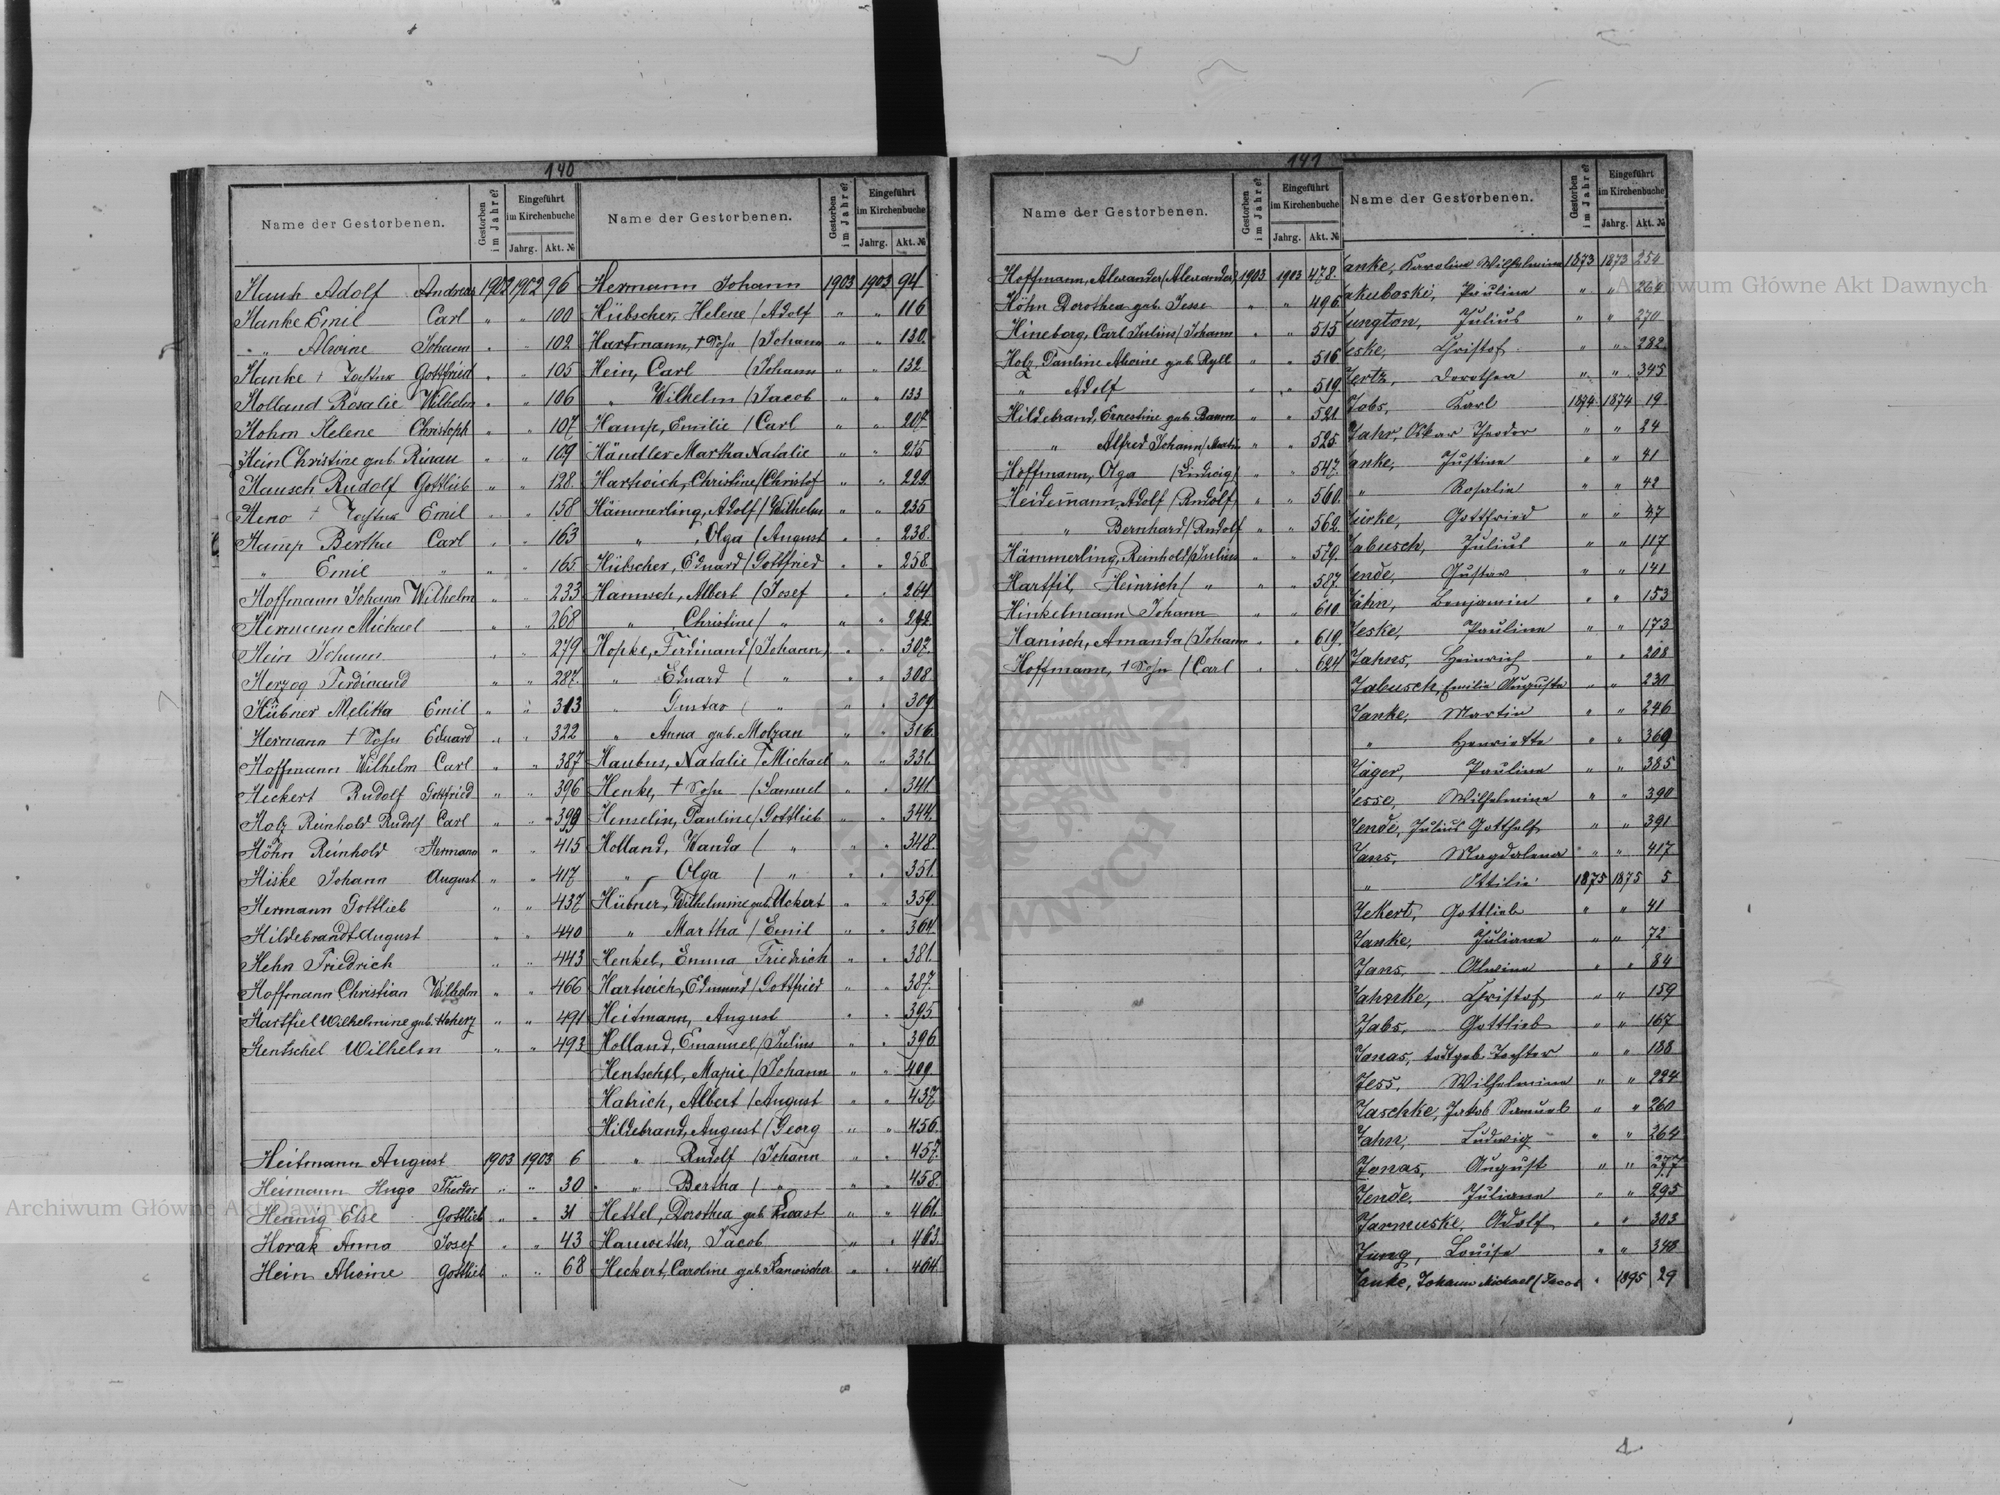 140
Name der Gestorbenen. Gestorben im Jahre? Eingeführt im Kirchenbuche Jahrg. Akt. №
Adolf Andreas 1902 1902 96
Hanke Emil Carl " " 100
" Alwine Johann " " 102
Hanke † Tochter Gottfried " " 105
Holland Rosalie Wilhelm " " 106
Hohm Helene Christoph " " 107
Hein Christine geb. Rinau " " 109
Hausch Rudolf Gottlieb " " 128
† Tochter Emil " " 158
Hamp Bertha Carl " " 163
" Emil " " " 165
Hoffmann Johann Wilhelm " " 233
Hermann Michael " " 268
Hein Johann " " 279
Herzog Ferdinand " " 287
Hübner Melitta Emil " " 313
Hermann † Sohn Eduard " " 322
Hoffmann Wilhelm Carl " " 387
Heckert Rudolf Gottfried " " 396
Holz Reinhold Rudolf Carl " " 399
Höhn Reinhold Hermann " " 415
Hiske Johann August " " 417
Hermann Gottlieb " " 437
Hildebrandt August " " 440
Hehn Friedrich " " 443
Hoffmann Christian Wilhelm " " 466
Hartfiel Wilhelmine geb. " " 491
Hentschel Wilhelm " " 493
Heitmann August 1903 1903 6
Heimann Hugo Theodor " " 30
Hennig Else Gottlieb " " 31
Horak Anna Josef " " 43
Hein Alwine Gottlieb " " 68
Name der Gestorbenen. Gestorben im Jahre? Eingeführt im Kirchenbuche Jahrg. Akt. №
Hermann Johann 1903 1903 94
Hübscher, Helene / Adolf " " 116
Hartmann, † Sohn / Johann " " 130
Hein, Carl / Johann " " 132
" Wilhelm / Jacob " " 133
Hamp, Emilie / Carl " " 207
Händler Martha Natalie " " 215
Hartwich, Christine / Christof " " 229
Hämmerling, Adolf / Wilhelm " " 235
" , Olga / August " " 238
Hübscher, Eduard / Gottfried " " 258
Hannsch, Albert / Josef " " 264
" Christine / " " " 292
Hopke, Ferdinand / Johann " " 307
" Eduard / " " " 308
" Gustav / " " " 309
" Anna geb. Molzan " " 316
Haubus, Natalie / Michael " " 331
Henke, † Sohn / Samuel " " 341
Henselin, Pauline / Gottlieb " " 344
Holland, Wanda / " " " 348
" Olga / " " " 351
Hübner, Wilhelmine geb. Uckert " " 359
" Martha / Emil " " 364
Henkel, Emma Friedrich " " 381
Hartwich, Edmund / Gottfried " " 387
Heitmann, August " " 395
Holland, Emanuel / Julius " " 396
Hentschel, Marie / Johann " " 409
Habrich, Albert / August " " 437
Hildebrand, August / Georg " " 456
" Rudolf / Johann " " 457
" Bertha / " " " 458
Hettel, Dorothea geb. " " 461
Jacob " " 463
Heckert, Caroline geb. Kanwischer " " 464
141
Name der Gestorbenen. Gestorben im Jahre? Eingeführt im Kirchenbuche Jahrg. Akt. №
Hoffmann, Alexander / Alexander 1903 1903 478
Höhn Dorothea geb. Jesse " " 496
Hineborg, Carl Julius / Johann " " 515
Holz, Pauline Alwine geb. Ryll " " 516
" Adolf " " 519
Hildebrand, Ernestine geb. Baum " " 521
" Alfred Johann / Martin " " 525
Hoffmann, Olga / Ludwig " " 547
Heidemann, Adolf / Rudolf " " 560
" Bernhard / Rudolf " " 562
Hämmerling, Reinhold / Julius " " 579
Hartfil, Heinrich / " " " 587
Hinkelmann Johann " " 610
Hanisch, Amanda / Johann " " 619
Hoffmann, † Sohn / Carl " " 624
Name der Gestorbenen. Gestorben im Jahre? Eingeführt im Kirchenbuche Jahrg. Akt. №
Janke, Karoline Wilhelmine 1873 1873 250
Jakuboski, Pauline " " 264
Jungton, Julius " " 270
Jeske, Christof " " 282
Jertz, Dorothea " " 345
Jobs, Karl 1874 1874 19
Jahr, Oskar Theodor " " 24
Janke, Justine " " 41
" Rosalie " " 42
Jürke, Gottfried " " 47
Jabusch, Julius " " 117
Jende, Gustav " " 141
Jähn, Benjamin " " 153
Jeske, Pauline " " 173
Jahns, Heinrich " " 208
Jabusch, Emilie Auguste " " 230
Janke, Martin " " 246
" Henriette " " 369
Jäger, Pauline " " 385
Jesse, Wilhelmine " " 390
Jende, Julius Gotthelf " " 391
Jans, Magdalena " " 417
" Ottilie 1875 1875 5
Jekert, Gottlieb " " 41
Janke, Juliane " " 72
Jans, Alwine " " 84
Jahnke, Christof " " 159
Jabs, Gottlieb " " 167
Janas, todtgeb. Tochter " " 188
Jess, Wilhelmine " " 224
Jaschke, Jakob Samuel " " 260
Jahn, Ludwig " " 264
Jonas, August " " 277
Jende, Juliane " " 295
Jarmuske, Adolf " " 303
Jung, Louise " " 348
Janke, Johann Michael / Jacob " 1895 29
Archiwum Główne Akt Dawnych
Archiwum Główne Akt Dawnych